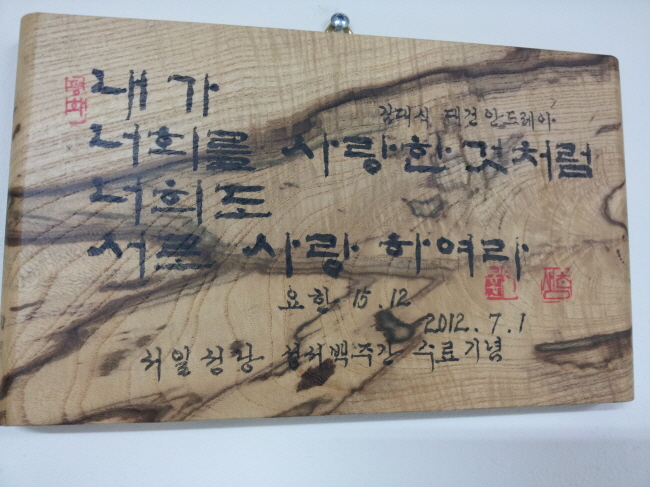 내가
김대식 대건안드레아
너희를 사랑한 것처럼
너희도
서로 사랑 하여라
요한 15.12
2012.7.1
서일성당 성서백주간 수료기념